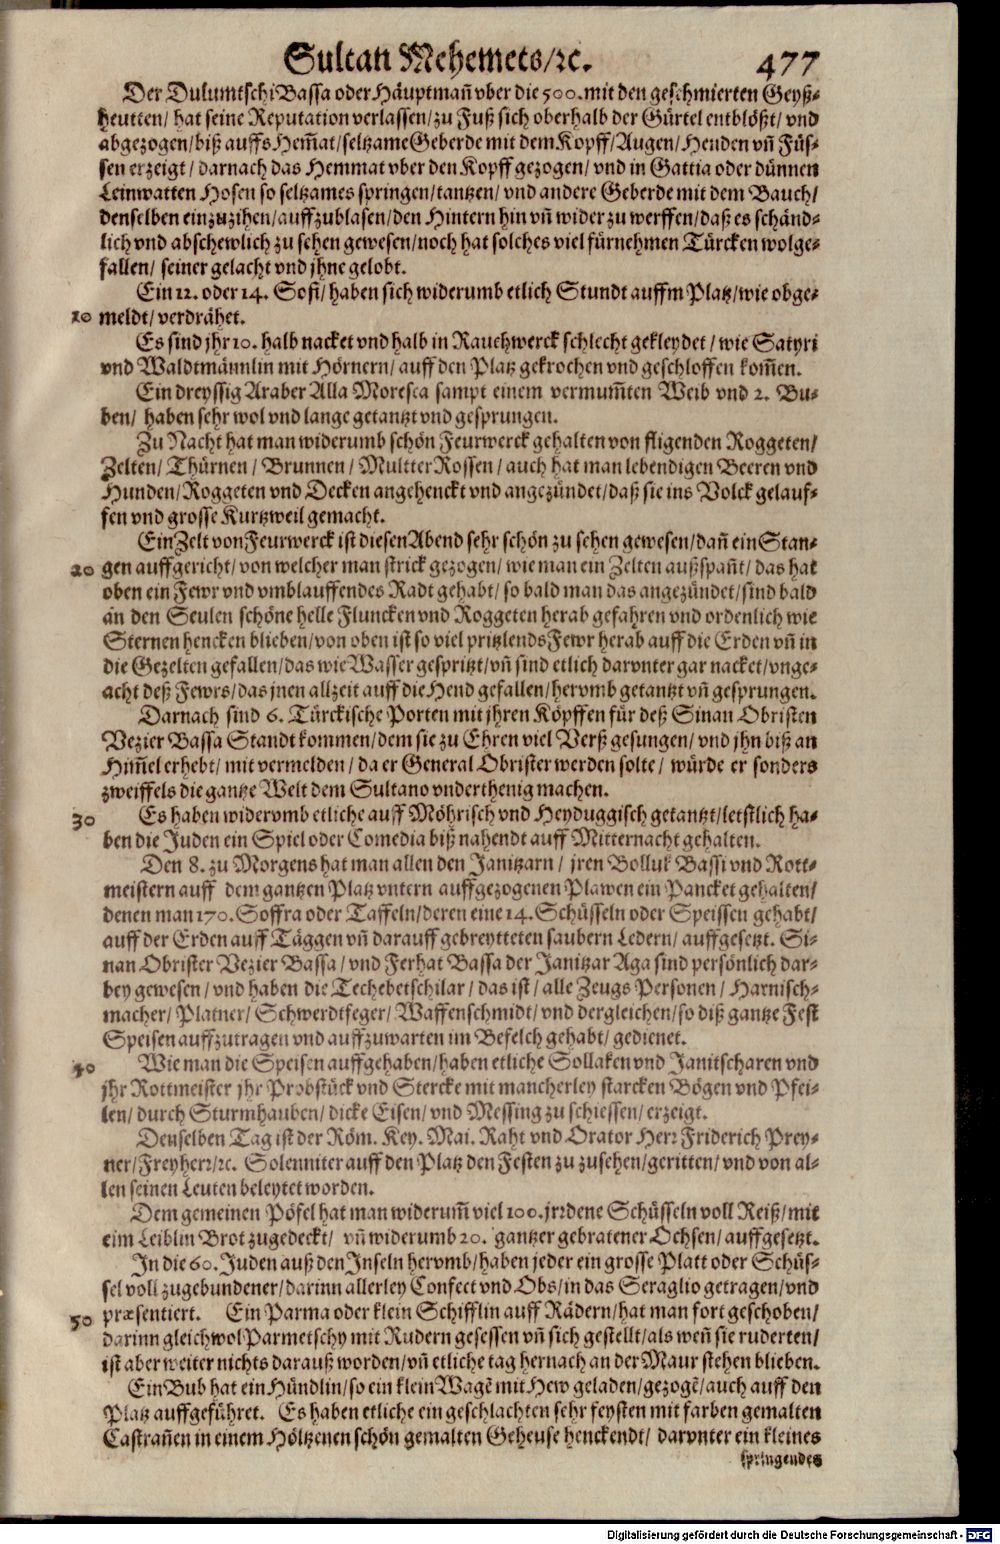 Sultan Mehemets/ꝛc. 477
Der Dulumtschi Bassa oder Häuptmañ vber die 500. mit den geschmierten Geyß-
heutten/ hat seine Reputation verlassen/ zu Fuß sich oberhalb der Gürtel entblößt/ vnd
abgezogen/ biß auffs Hem̃at/ seltzame Geberde mit dem Kopff/ Augen/ Henden vñ Füs-
sen erzeigt/ darnach das Hemmat vber den Kopff gezogen/ vnd in Gattia oder dünnen
Leinwatten Hosen so seltzames springen/ tantzen/ vnd andere Geberde mit dem Bauch/
denselben einzuzihen/ auffzublasen/ den Hintern hin vñ wider zu werffen/ daß es schänd-
lich vnd abschewlich zu sehen gewesen/ noch hat solches viel fürnehmen Türcken wolge-
fallen/ seiner gelacht vnd jhne gelobt.
Ein 12. oder 14. Sofi/ haben sich widerumb etlich Stundt auffm Platz/ wie obge-
10 meldt/ verdrähet.
Es sind jhr 10. halb nacket vnd halb in Rauchwerck schlecht gekleydet/ wie Satyri
vnd Waldtmännlin mit Hörnern/ auff den Platz gekrochen vnd geschloffen kom̃en.
Ein dreyssig Araber Alla Moresca sampt einem vermum̃ten Weib vnd 2. Bu-
ben/ haben sehr wol vnd lange getantzt vnd gesprungen.
Zu Nacht hat man widerumb schön Feurwerck gehalten von fligenden Roggeten/
Zelten/ Thürnen/ Brunnen/ Multter Rossen/ auch hat man lebendigen Beeren vnd
Hunden/ Roggeten vnd Decken angehenckt vnd angezündet/ daß sie ins Volck gelauf-
fen vnd grosse Kurtzweil gemacht.
Ein Zelt von Feurwerck ist diesen Abend sehr schön zu sehen gewesen/ dañ ein Stan-
20 gen auffgericht/ von welcher man strick gezogen/ wie man ein Zelten außspañt/ das hat
oben ein Fewr vnd vmblauffendes Radt gehabt/ so bald man das angezündet/ sind bald
an den Seulen schöne helle Fluncken vnd Roggeten herab gefahren vnd ordenlich wie
Sternen hencken blieben/ von oben ist so viel pritzlends Fewr herab auff die Erden vñ in
die Gezelten gefallen/ das wie Wasser gespritzt/ vñ sind etlich darvnter gar nacket/ vnge-
acht deß Fewrs/ das jnen allzeit auff die Hend gefallen/ hervmb getantzt vñ gesprungen.
Darnach sind 6. Türckische Porten mit jhren Köpffen für deß Sinan Obristen
Vezier Bassa Standt kommen/ dem sie zu Ehren viel Verß gesungen/ vnd jhn biß an
Him̃el erhebt/ mit vermelden/ da er General Obrister werden solte/ würde er sonders
zweiffels die gantze Welt dem Sultano vnderthenig machen.
30 Es haben widervmb etliche auff Möhrisch vnd Heyduggisch getantzt/ letstlich ha-
ben die Juden ein Spiel oder Comedia biß nahendt auff Mitternacht gehalten.
Den 8. zu Morgens hat man allen den Janitzarn/ jren Bolluk Bassi vnd Rott-
meistern auff dem gantzen Platz vntern auffgezogenen Plawen ein Pancket gehalten/
denen man 170. Soffra oder Taffeln/ deren eine 14. Schüsseln oder Speissen gehabt/
auff der Erden auff Täggen vñ darauff gebreytteten saubern Ledern/ auffgesetzt. Si-
nan Obrister Vezier Bassa/ vnd Ferhat Bassa der Janitzar Aga sind persönlich dar-
bey gewesen/ vnd haben die Techebetschilar/ das ist/ alle Zeugs Personen/ Harnisch-
macher/ Platner/ Schwerdtfeger/ Waffenschmidt/ vnd dergleichen/ so diß gantze Fest
Speisen auffzutragen vnd auffzuwarten im Befelch gehabt/ gedienet.
40 Wie man die Speisen auffgehaben/ haben etliche Sollaken vnd Janitscharen vnd
jhr Rottmeister jhr Probstück vnd Stercke mit mancherley starcken Bögen vnd Pfei-
len/ durch Sturmhauben/ dicke Eisen/ vnd Messing zu schiessen/ erzeigt.
Denselben Tag ist der Röm. Key. Mai. Raht vnd Orator Herr Friderich Prey-
ner/ Freyherr/ꝛc. Solenniter auff den Platz den Festen zu zusehen/ geritten/ vnd von al-
len seinen Leuten beleytet worden.
Dem gemeinen Pöfel hat man widerum̃ viel 100. jrrdene Schüsseln voll Reiß/ mit
eim Leiblin Brot zugedeckt/ vñ widerumb 20. gantzer gebratener Ochsen/ auffgesetzt.
In die 60. Juden auß den Inseln hervmb/ haben jeder ein grosse Platt oder Schüs-
sel voll zugebundener/ darinn allerley Confect vnd Obs/ in das Seraglio getragen/ vnd
50 præsentiert. Ein Parma oder klein Schifflin auff Rädern/ hat man fort geschoben/
darinn gleichwol Parmetschy mit Rudern gesessen vñ sich gestellt/ als weñ sie ruderten/
ist aber weiter nichts darauß worden/ vñ etliche tag hernach an der Maur stehen blieben.
Ein Bub hat ein Hündlin/ so ein klein Wagẽ mit Hew geladen/ gezogẽ/ auch auff den
Platz auffgeführet. Es haben etliche ein geschlachten sehr feysten mit farben gemalten
Castrañen in einem Höltzenen schön gemalten Geheuse henckendt/ darvnter ein kleines
springendes
Digitalisierung gefördert durch die Deutsche Forschungsgemeinschaft - DFG